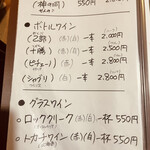 (神の河) 550円
● ボトルワイン
(乙部) (赤)(白) 一本 2.000円
(十勝) (赤)(白) 一本 2.500円
(ピチューノ) (赤) 一本 2.800円
(シャブリ) (白) 一本 2.800円
● グラスワイン
○ ロッククリーク (赤)(白) 一杯 550円
○ トカチワイン (赤)(白) 一杯 550円